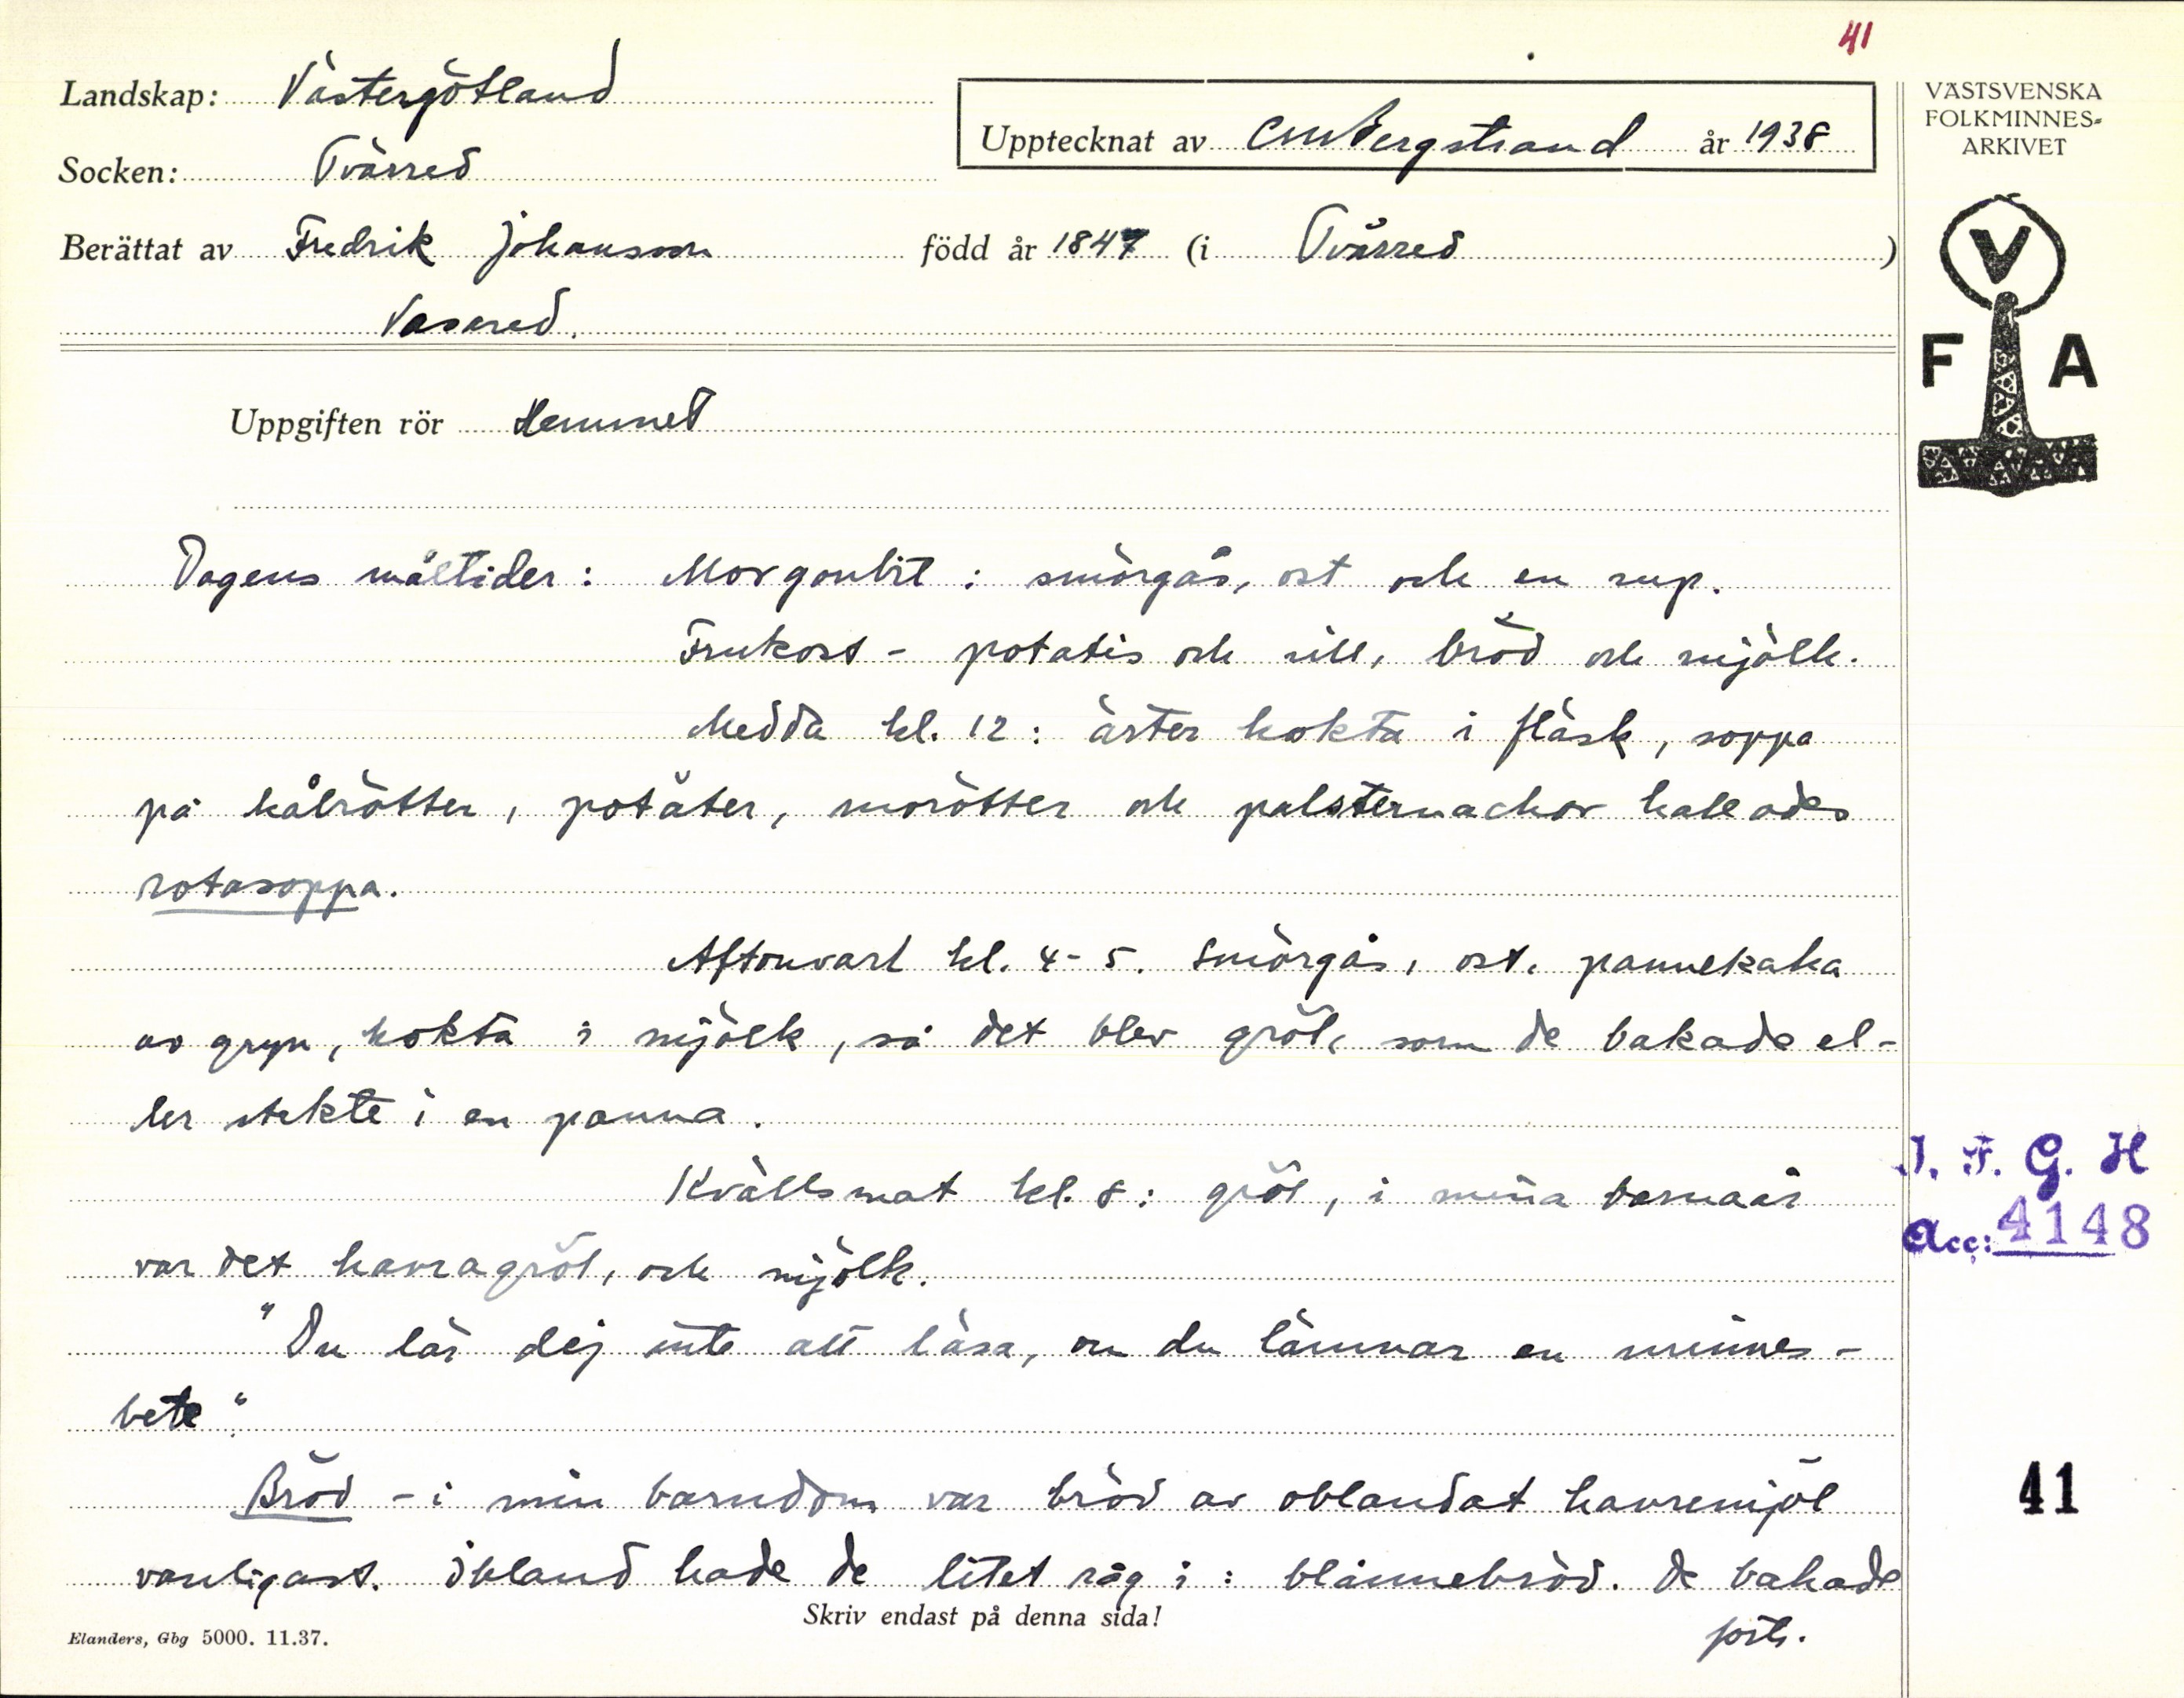 41
Landskap: Västergötland
Upptecknat av CMBergstrand år 1938
VÄSTSVENSKA
FOLKMINNES-
ARKIVET
Socken: Tvärred
Berättat av Fredrik Johansson född år 1847 (i Tvärred)
Vasared.
V
F A
Uppgiften rör Hemmet
Dagens måltider: Morgonbit: smörgås, ost och en sup.
Frukost - potatis och sill, bröd och mjölk.
Medda kl. 12: ärter kokta i fläsk, soppa
på kålrötter, potäter, morötter och palsternackor kallades
rotasoppa.
Aftonvarl kl. 4-5. Smörgås, ost, pannekaka
av gryn, kokta i mjölk, så det blev gröt, som de bakade el-
ler stekte i en panna.
Kvällsmat kl. 8: gröt, i mina barnaår
var det havragröt, och mjölk.
"Du lär dej inte att läsa, om du lämnar en minnes-
bete".
Bröd - i min barndom var bröd av oblandat havremjöl
vanligast. Ibland hade de litet råg i: blännebröd. De bakade
forts.
I. F. G. H
Acc: 4148
41
Skriv endast på denna sida!
Elanders, Gbg 5000. 11.37.